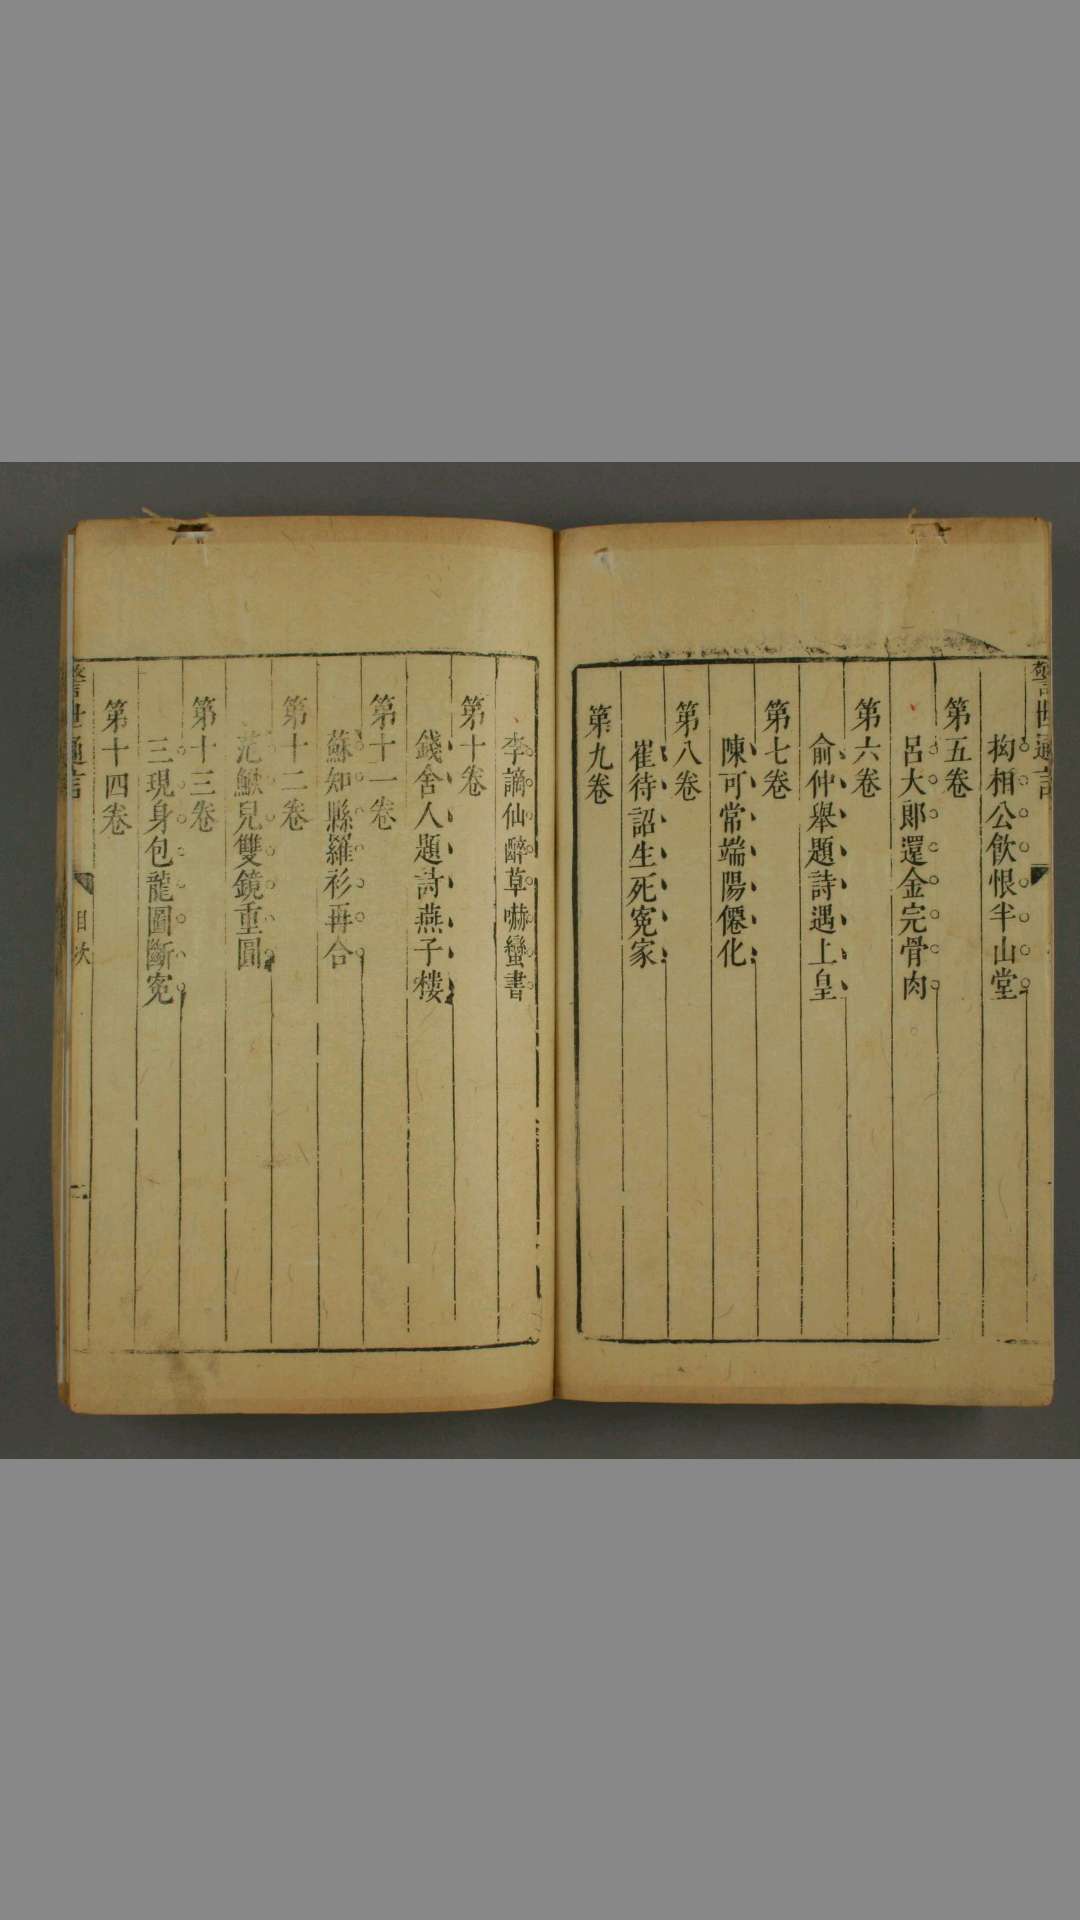 警世通言
拘相公飲恨半山堂
第五卷
呂大郎還金完骨肉
第六卷
俞仲舉題詩遇上皇
第七卷
陳可常端陽僊化
第八卷
崔待詔生死冤家
第九卷
李謫仙醉草嚇蠻書
第十卷
錢舍人題詩燕子樓
第十一卷
蘇知縣羅衫再合
第十二卷
范鰍兒雙鏡重圓
第十三卷
三現身包龍圖斷冤
第十四卷
警世通言
目次
二